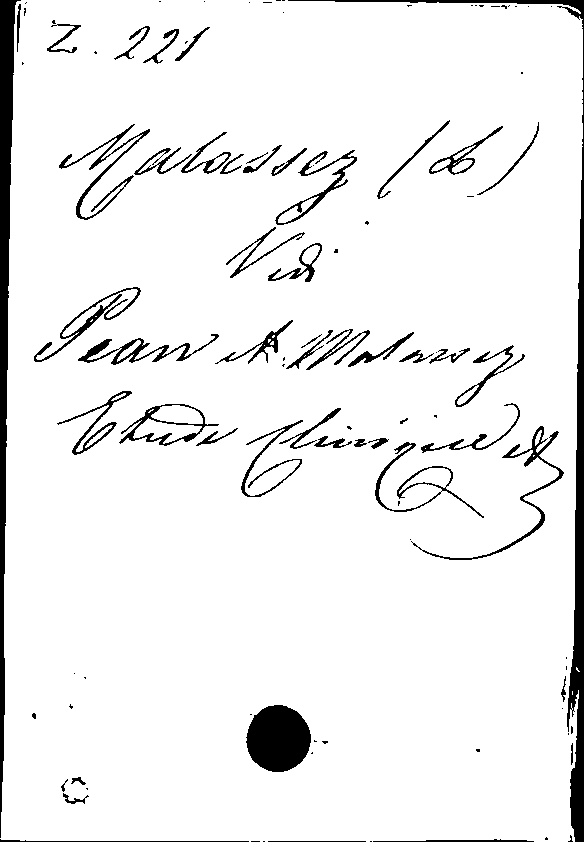 Z. 221
Malassez (L)
Vidi
Pean et Malassez
Etude Clinique et